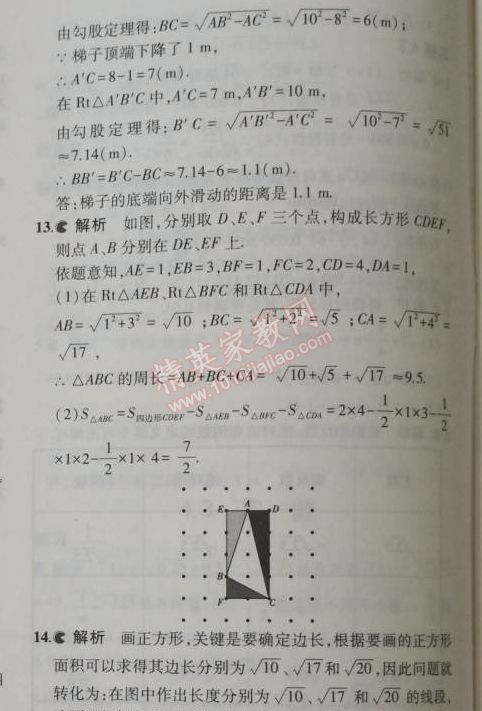 由勾股定理得:BC=√(AB²-AC²)=√(10²-8²)=6(m);
∵梯子顶端下降了1 m,
∴A′C=8-1=7(m).
在Rt△A′B′C中,A′C=7 m,A′B′=10 m,
由勾股定理得:B′C=√(A′B′²-A′C²)=√(10²-7²)=√51
≈7.14(m).
∴BB′=B′C-BC≈7.14-6≈1.1(m).
答:梯子的底端向外滑动的距离是1.1 m.
13. 解析 如图,分别取D、E、F三个点,构成长方形CDEF,
则点A、B分别在DE、EF上.
依题意知,AE=1,EB=3,BF=1,FC=2,CD=4,DA=1,
(1)在Rt△AEB、Rt△BFC和Rt△CDA中,
AB=√(1²+3²)=√10;BC=√(1²+2²)=√5;CA=√(1²+4²)=
√17,
∴△ABC的周长=AB+BC+CA=√10+√5+√17≈9.5.
精英家教网
www.1010jiajiao.com
(2)S△ABC=S四边形CDEF-S△AEB-S△BFC-S△CDA=2×4-1/2×1×3-1/2
×1×2-1/2×1×4=7/2.
E A D
B
F C
14. 解析 画正方形,关键是要确定边长,根据要画的正方形
面积可以求得其边长分别为√10、√17和√20,因此问题就
转化为:在图中作出长度分别为√10、√17和√20的线段,